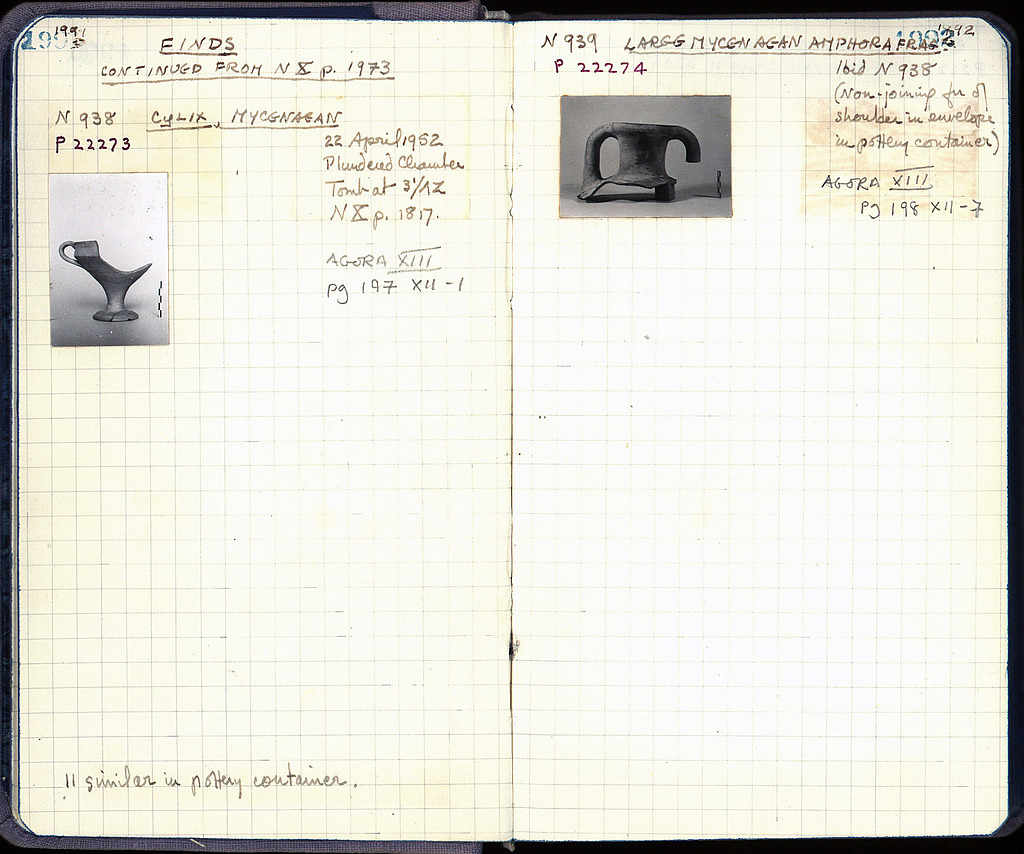 1991
FINDS
CONTINUED FROM N X p. 1973
N 938 CYLIX, MYCENAEAN
P 22273
22 April 1952
Plundered Chamber
Tomb at
N X p. 1817.
AGORA XIII
pg 197 XII-1
11 similar in pottery container.
1992
N 939 LARGE MYCENAEAN AMPHORA FRAG
P 22274
Ibid N 938
(Non-joining fr of
shoulder in envelope
in pottery container)
AGORA XIII
pg 198 XII-7